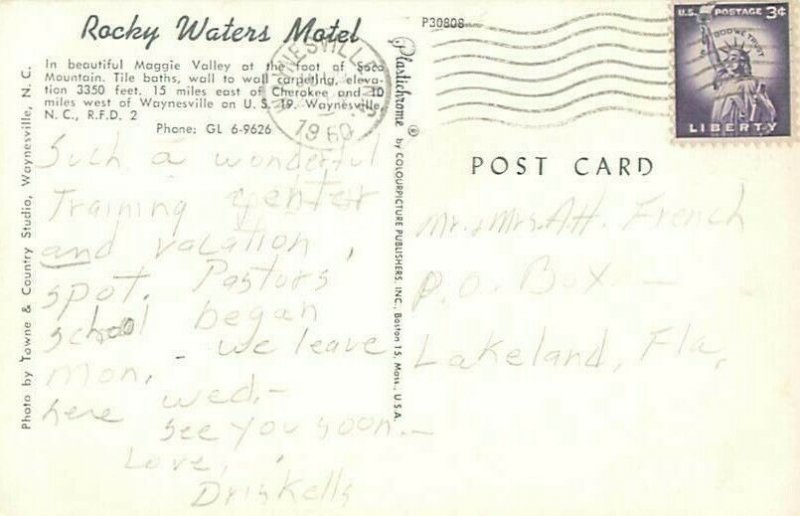 Rocky Waters Motel
In beautiful Maggie Valley at the foot of Soco
Mountain. Tile baths, wall to wall carpeting, eleva-
tion 3350 feet. 15 miles east of Cherokee and 10
miles west of Waynesville on U. S. 19. Waynesville,
N. C., R.F.D. 2
Phone: GL 6-9626
Photo by Towne & Country Studio, Waynesville, N. C.
Such a wonderful
Training center
and vacation
spot. Pastors
school began
Mon, - we leave
here wed.-
See you soon.-
Love,
Driskells
Plastichrome ® by COLOURPICTURE PUBLISHERS, INC., Boston 15, Mass., U.S.A.
P30808
WAYNESVILLE
1960
U.S. POSTAGE 3¢
IN GOD WE TRUST
LIBERTY
POST CARD
Mr. & Mrs. A.H. French
P.O. Box —
Lakeland, Fla,